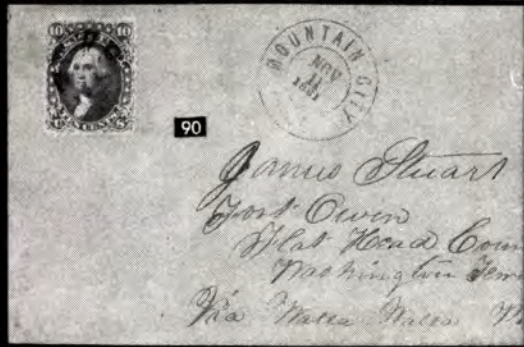 10 10
MOUNTAIN CITY
NOV
11
1861
90
James Stuart
Fort Owen
Flat Head Coun
Washington Terr
Via Walla Walla W